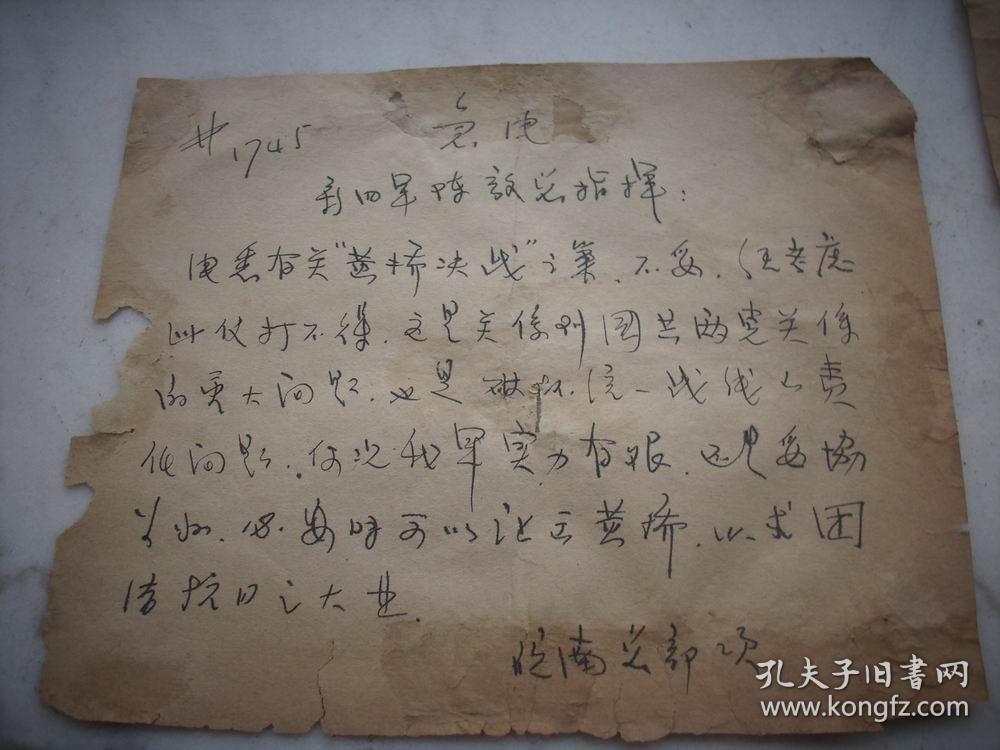 #1745 急电
新四军陈毅总指挥：
电悉有关"黄桥决战"之策、不妥、任考虑
此仗打不得、这是关係到国共两党关係
的重大问题、也是破坏统一战线之责
任问题、何况我军实力有限、还是妥协
为好、必要时可以让出黄桥、以求团
结抗日之大业
皖南总部 项
孔夫子旧书网
www.kongfz.com